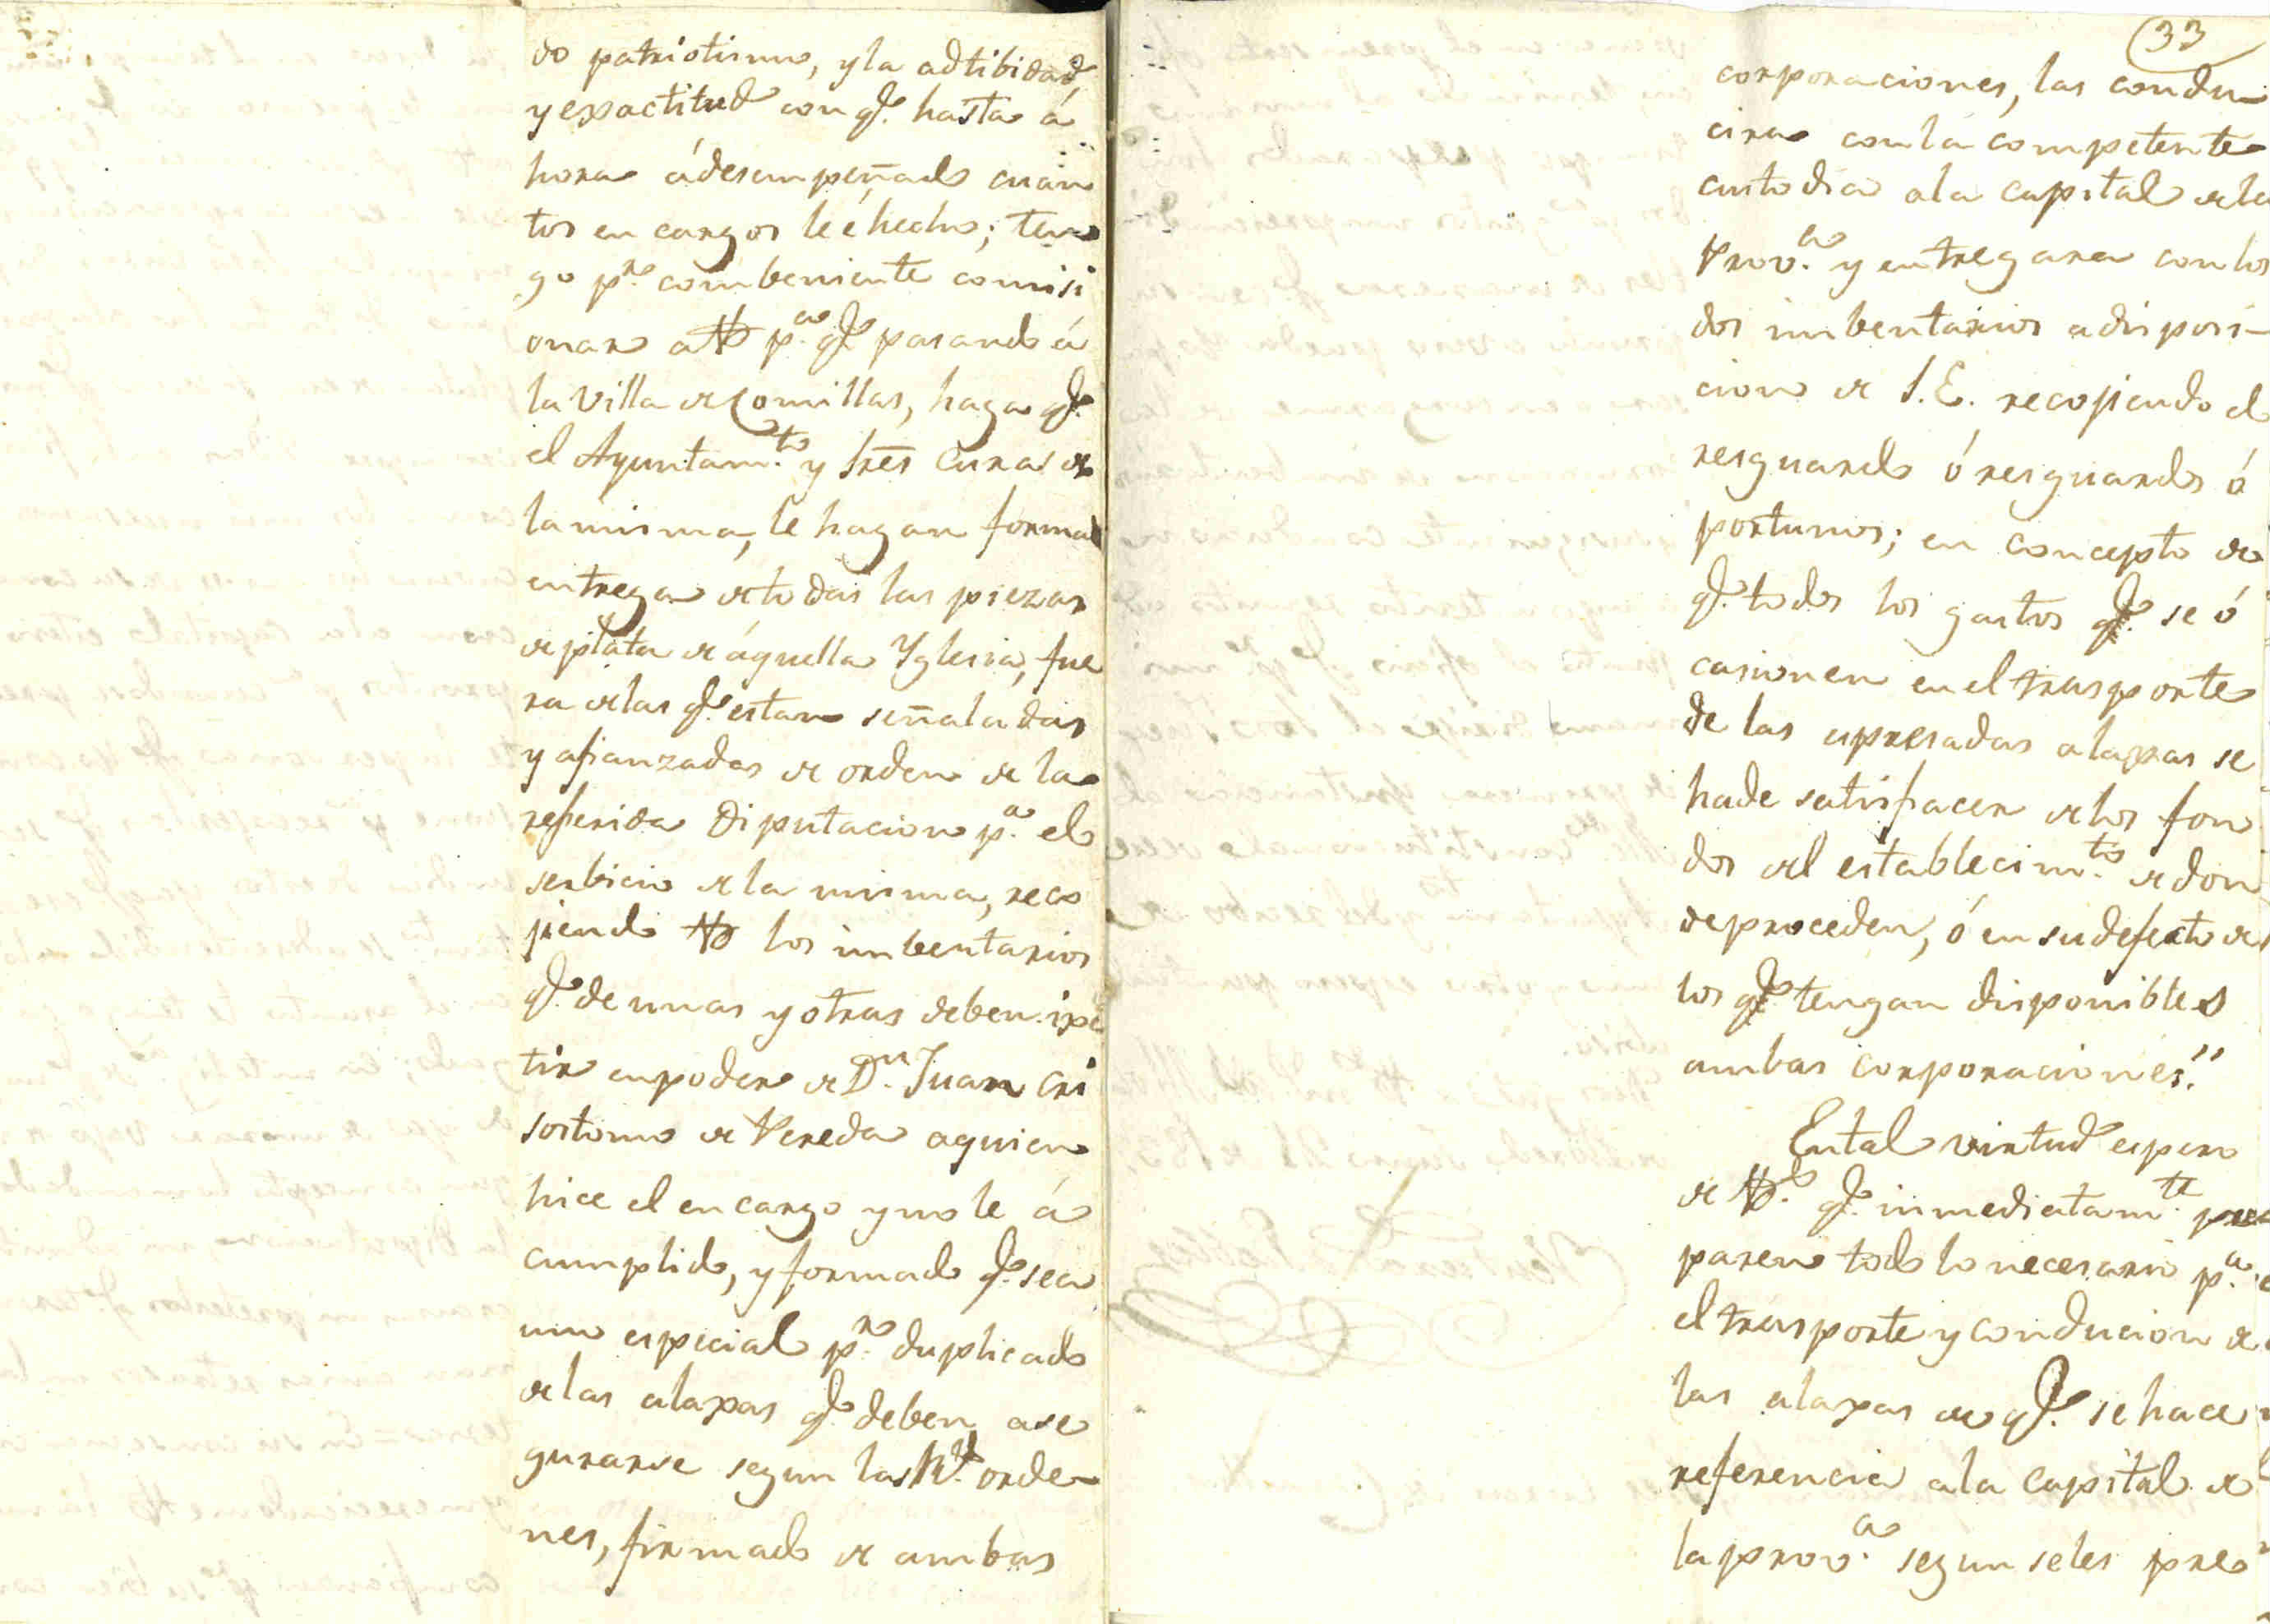 do patriotismo, y la adtibidad,
y exactitud con q.e hasta á
hora á desempeñado cuan
tos encargos le é hecho; ten
go p.r combeniente comisi
onar a V p.a q.e pasando á
la Villa de Comillas, haga q.e
el Ayuntam.to y Sres Curas de
la misma, le hagan formal
entrega de todas las piezas
de plata de áquella Yglesia, fue
ra de las q.e estan señaladas
y afianzadas de orden de la
referida Diputacion p.a el
serbicio de la misma, reco
jiendo V los imbentarios
q.e de unas y otras deben ixis
tir en poder de D.n Juan Cri
sostomo de Vereda a quien
hice el encargo y no le á
cumplido, y formado q.e sea
uno especial p.r duplicado
de las alajas q.e deben ase
gurarse segun las R.s orde
nes, firmado de ambas
33
corporaciones, las condu
cira con la competente
custodia a la capital de la
Prov.a y entregara con los
dos imbentarios a disposi-
cion de S.E. recojiendo el
resguardo ó resguardos ó
portunos; en concepto de
q.e todos los gastos q.e se ó
casionen en el trasporte
de las espresadas alajas se
ha de satisfacer de los fon
dos del establecim.to de don
de proceden, ó en su defecto de
los q.e tengan disponibles
ambas corporaciones."
En tal virtud espero
de V.s q.e inmediatam.te pre
paren todo lo necesario p.a
el trasporte y conducion de
las alajas de q.e se hace
referencia a la capital de
la prov.a segun se les pre